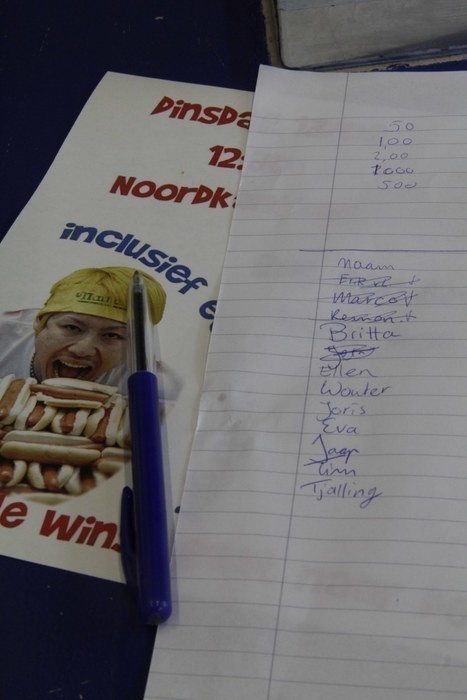 Dinsda
12:
Noordk
inclusief e
de wins
50
1,00
2,00
1000
500
Naam
Marco
Remon
Britta
Ellen
Wouter
Joris
Eva
Jaap
Tim
Tjalling